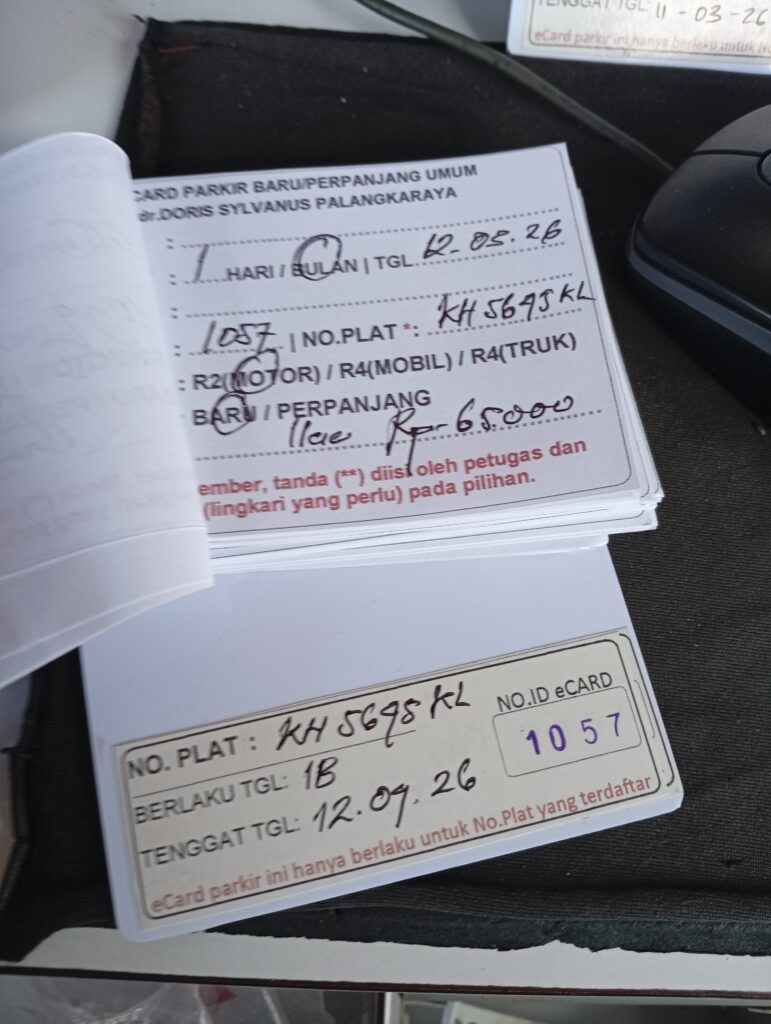 TENGGAT TGL: 11 - 03 - 26
eCard parkir ini hanya berlaku untuk No
CARD PARKIR BARU/PERPANJANG UMUM
dr.DORIS SYLVANUS PALANGKARAYA
:
: 1 HARI / BULAN | TGL 12.05.26
:
: 1057 | NO.PLAT *: KH 5695 KL
: R2(MOTOR) / R4(MOBIL) / R4(TRUK)
BARU / PERPANJANG
Rp 65.000
ember, tanda (**) diisi oleh petugas dan
(lingkari yang perlu) pada pilihan.
NO. PLAT : KH 5695 KL
NO.ID eCARD
1057
BERLAKU TGL: 1B
TENGGAT TGL: 12.04.26
eCard parkir ini hanya berlaku untuk No.Plat yang terdaftar